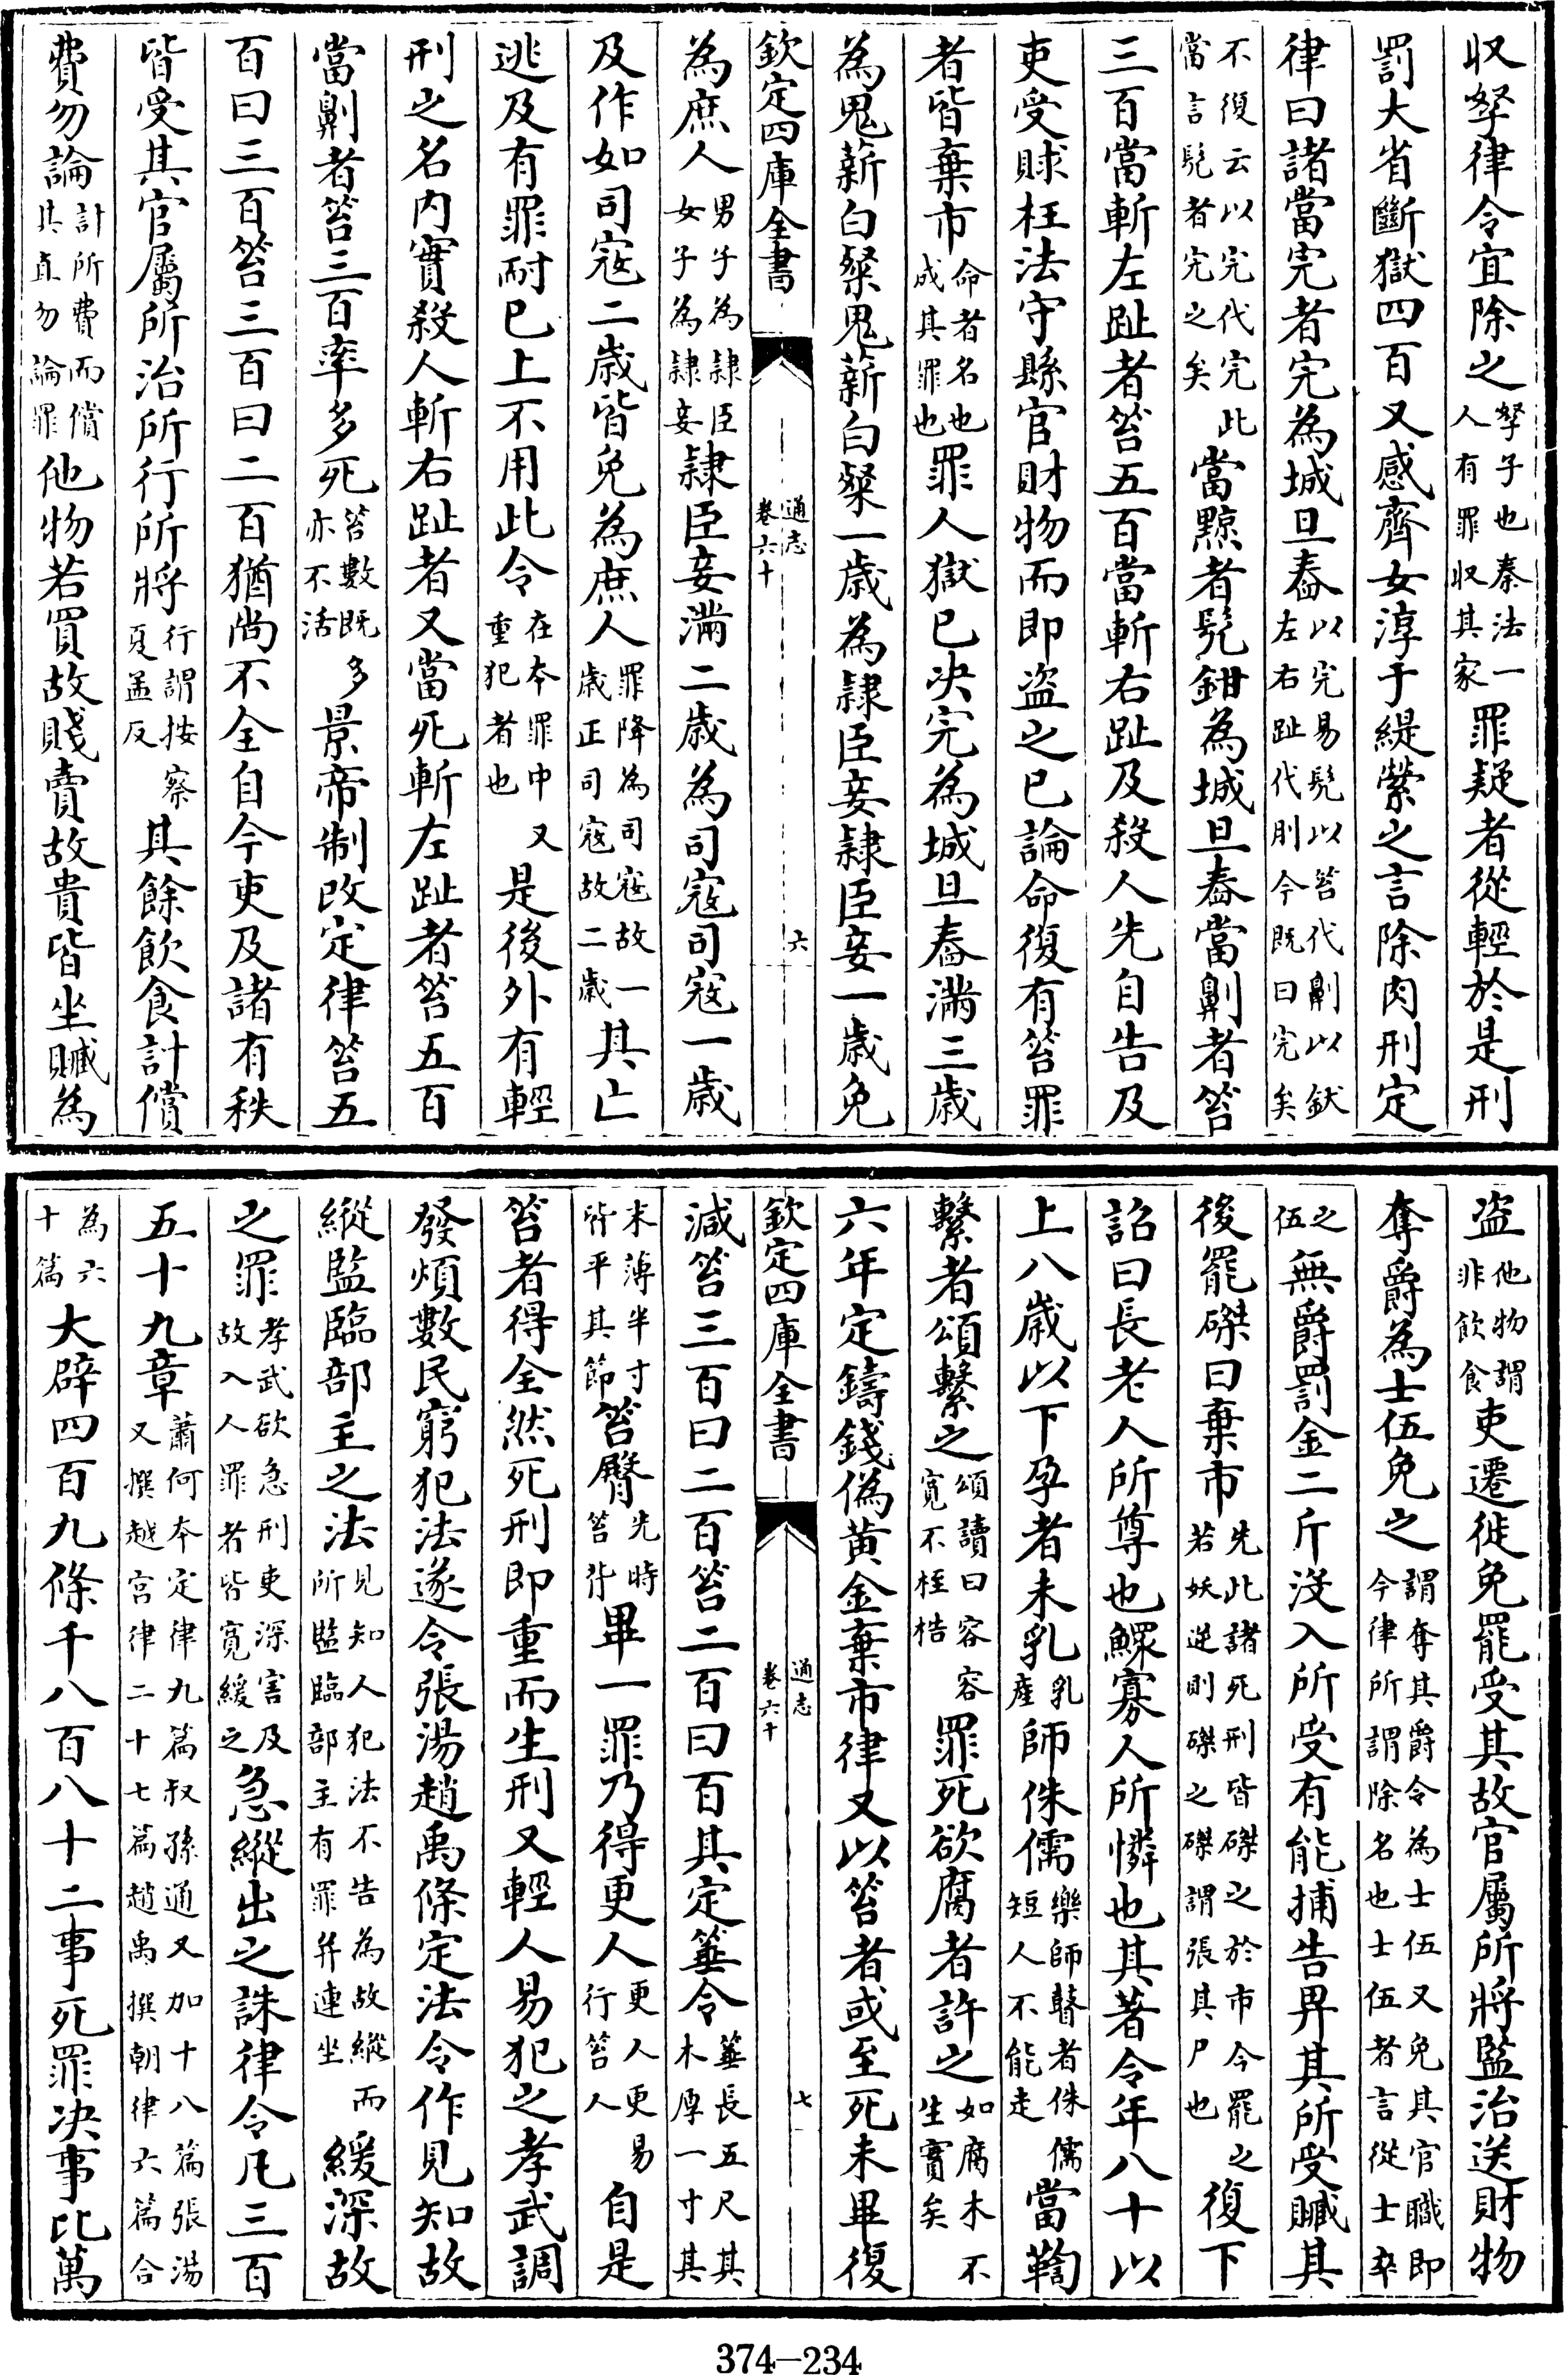 収孥律令宜除之孥子也秦法一人有罪収其家罪疑者從輕於是刑
罰大省斷獄四百又感齊女淳于緹縈之言除肉刑定
律曰諸當完者完為城旦舂以完易髡以笞代劓以釱左右趾代刖今既曰完矣
不復云以完代完此當言髡者完之矣當黥者髡鉗為城旦舂當劓者笞
三百當斬左趾者笞五百當斬右趾及殺人先自告及
吏受賕枉法守縣官財物而即盗之已論命復有笞罪
者皆棄市命者名也成其罪也罪人獄已决完為城旦舂滿三歳
為鬼薪白粲鬼薪白粲一歳為隸臣妾隸臣妾一歳免
欽定四庫全書
通志
卷六十
六
為庶人男子為隸臣女子為隸妾隸臣妾滿二歳為司寇司寇一歳
及作如司寇二歳皆免為庶人罪降為司寇故一歳正司寇故二歳其亡
逃及有罪耐已上不用此令在本罪中又重犯者也是後外有輕
刑之名内實殺人斬右趾者又當死斬左趾者笞五百
當劓者笞三百率多死笞數既多亦不活景帝制改定律笞五
百曰三百笞三百曰二百猶尚不全自今吏及諸有秩
皆受其官屬所治所行所將行謂按察夏孟反其餘飲食計償
費勿論計所費而償其直勿論罪他物若買故賤賣故貴皆坐贓為
盗他物謂非飲食吏遷徙免罷受其故官屬所將監治送財物
奪爵為士伍免之謂奪其爵令為士伍又免其官職即今律所謂除名也士伍者言從士卒
之伍無爵罰金二斤沒入所受有能捕告畀其所受贓其
後罷磔曰棄市先此諸死刑皆磔之於市今罷之若妖逆則磔之磔謂張其尸也復下
詔曰長老人所尊也鰥寡人所憐也其著令年八十以
上八歳以下孕者未乳乳產師侏儒樂師瞽者侏儒短人不能走當鞫
繫者頌繫之頌讀曰容容寛不桎梏罪死欲腐者許之如腐木不生實矣
六年定鑄錢偽黄金棄市律又以笞者或至死未畢復
欽定四庫全書
通志
卷六十
七
減笞三百曰二百笞二百曰百其定箠令箠長五尺其木厚一寸其
末薄半寸皆平其節笞臀先時笞背畢一罪乃得更人更人更易行笞人自是
笞者得全然死刑即重而生刑又輕人易犯之孝武調
發煩數民窮犯法遂令張湯趙禹條定法令作見知故
縱監臨部主之法見知人犯法不告為故縱而所監臨部主有罪并連坐緩深故
之罪孝武欲急刑吏深害及故入人罪者皆寛緩之急縱出之誅律令凡三百
五十九章蕭何本定律九篇叔孫通又加十八篇張湯又撰越宫律二十七篇趙禹撰朝律六篇合
為六十篇大辟四百九條千八百八十二事死罪决事比萬
374-234